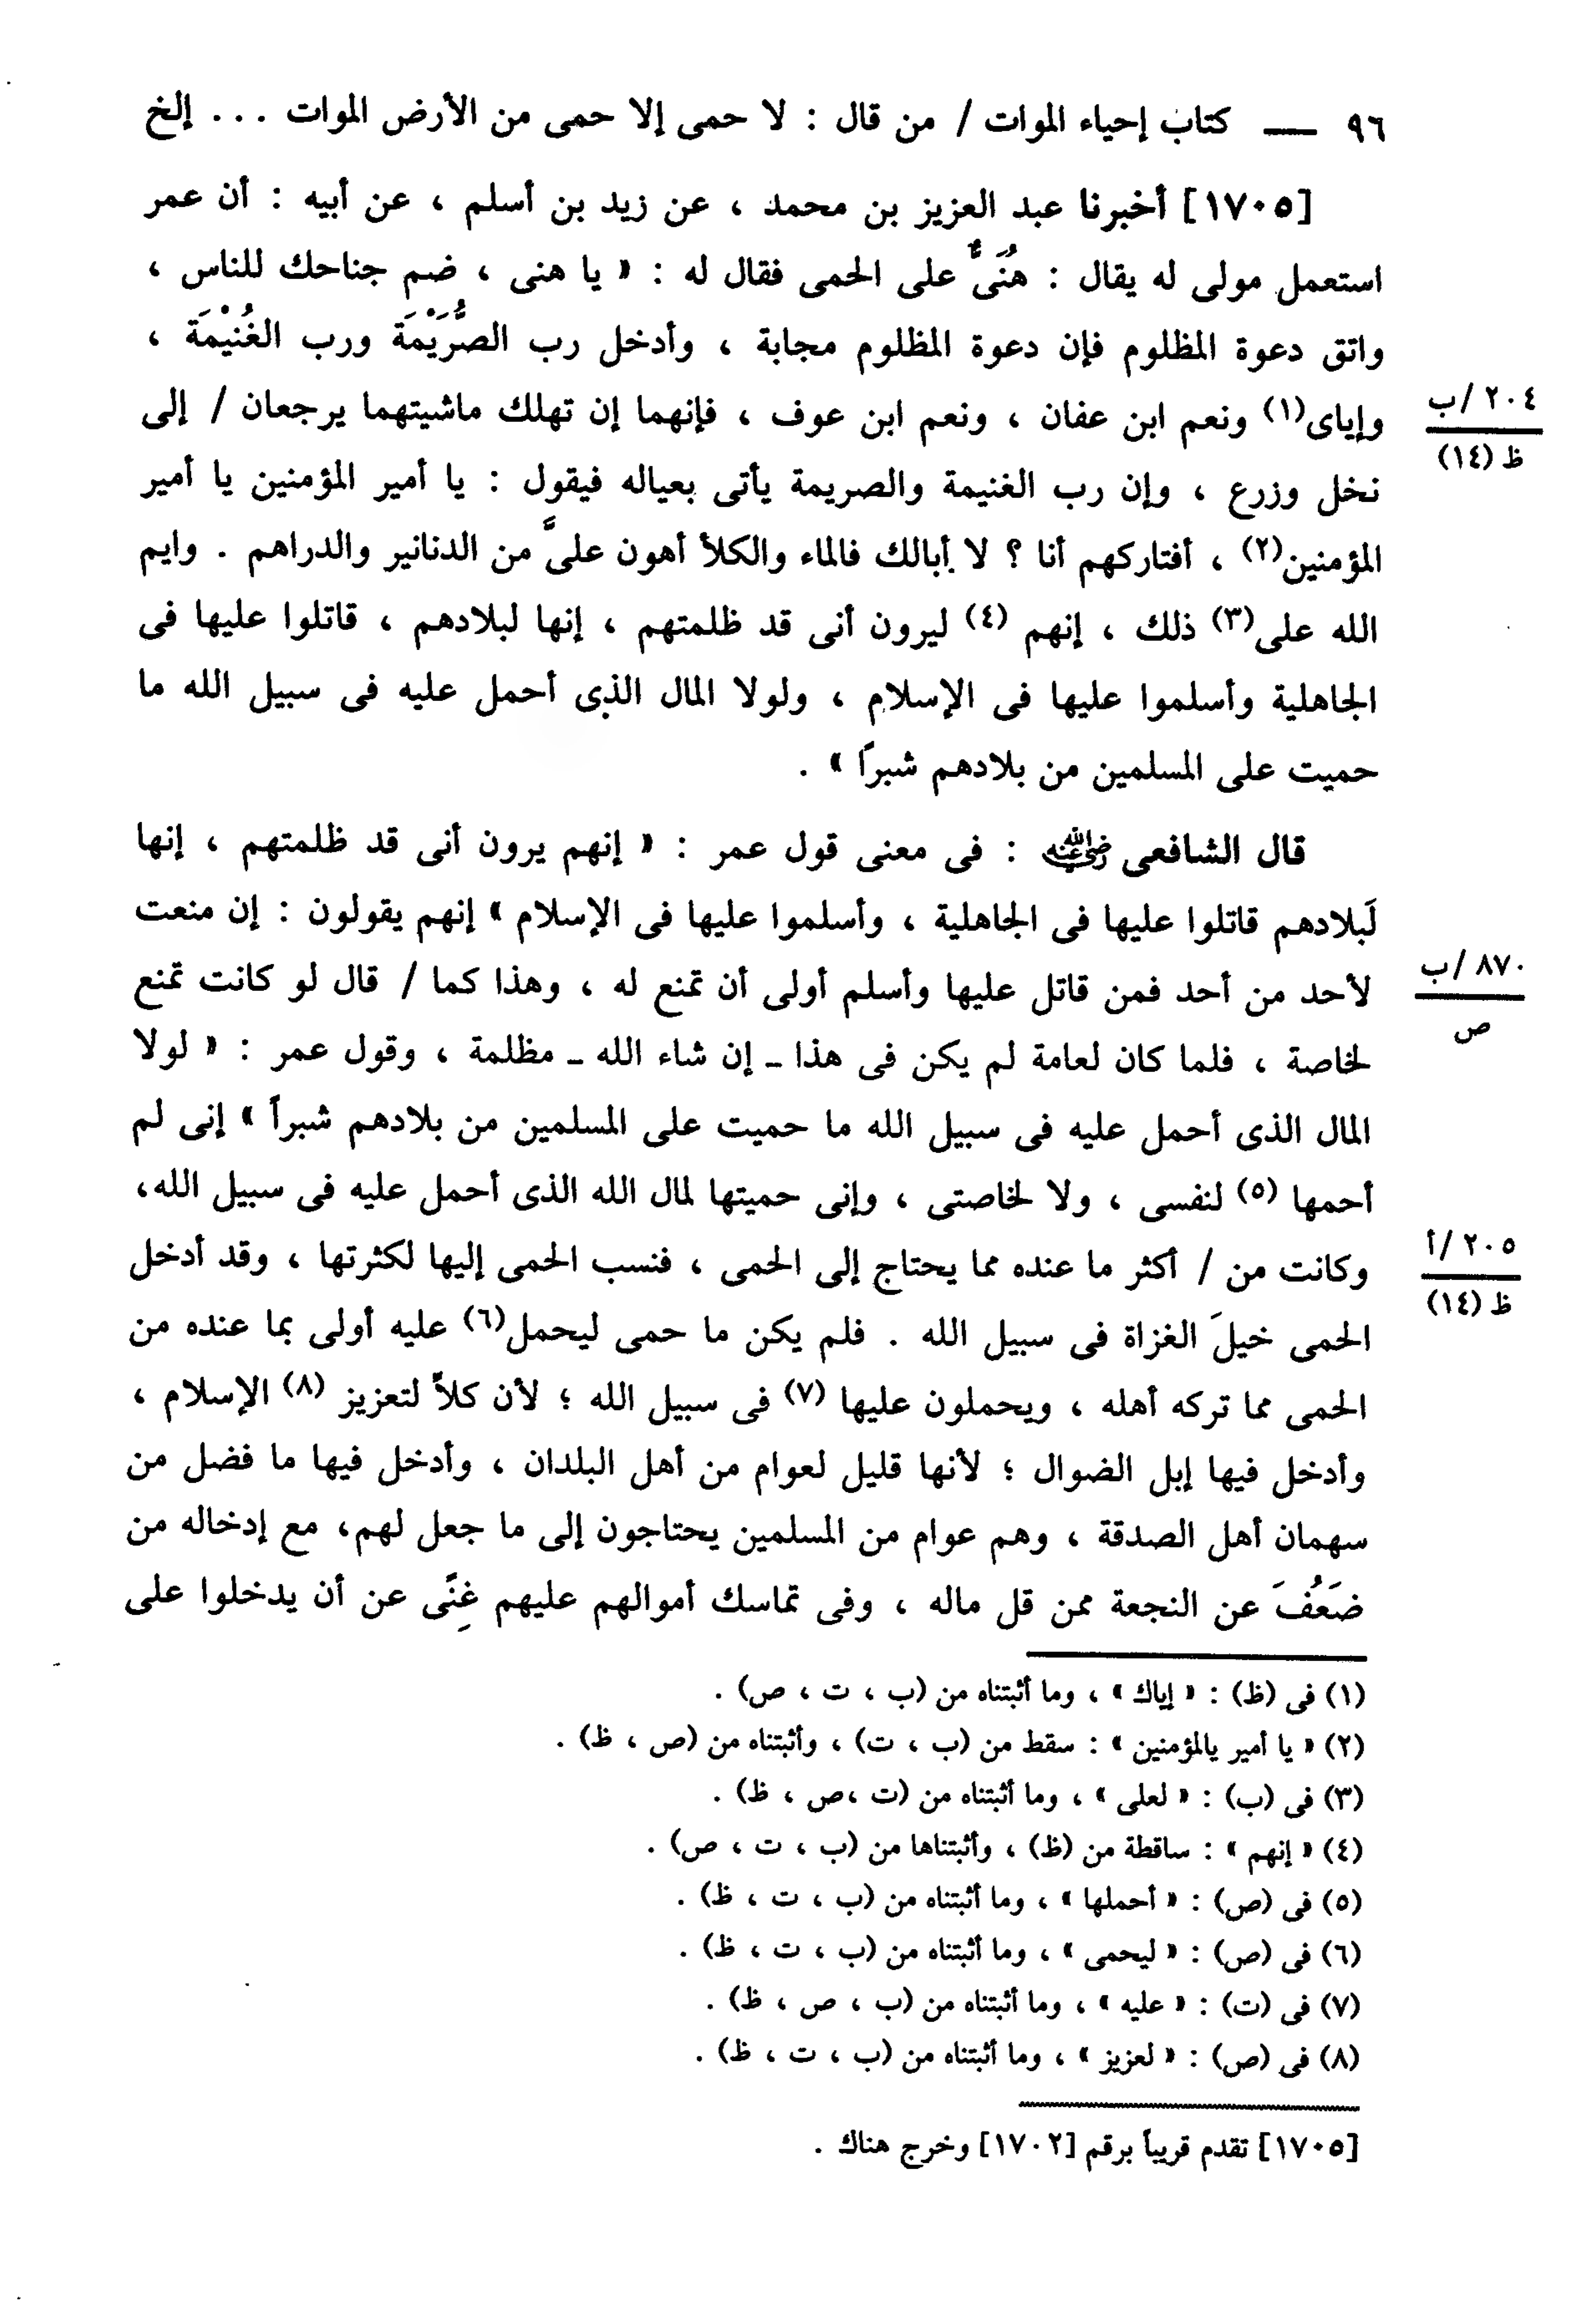 ٩٦ ــــ كتاب إحياء الموات / من قال : لا حمى إلا حمى من الأرض الموات . . . إلخ
[١٧٠٥] أخبرنا عبد العزيز بن محمد ، عن زيد بن أسلم ، عن أبيه : أن عمر
استعمل مولى له يقال : هُنَىٌّ على الحمى فقال له : « يا هنى ، ضم جناحك للناس ،
واتق دعوة المظلوم فإن دعوة المظلوم مجابة ، وأدخل رب الصُّرَيْمَة ورب الغُنَيْمَة ،
وإياى(١) ونعم ابن عفان ، ونعم ابن عوف ، فإنهما إن تهلك ماشيتهما يرجعان / إلى
٢٠٤ /ب
ظ (١٤)
نخل وزرع ، وإن رب الغنيمة والصريمة يأتى بعياله فيقول : يا أمير المؤمنين يا أمير
المؤمنين(٢) ، أفتاركهم أنا ؟ لا أبالك فالماء والكلأ أهون علىَّ من الدنانير والدراهم . وايم
الله على(٣) ذلك ، إنهم (٤) ليرون أنى قد ظلمتهم ، إنها لبلادهم ، قاتلوا عليها فى
الجاهلية وأسلموا عليها فى الإسلام ، ولولا المال الذى أحمل عليه فى سبيل الله ما
حميت على المسلمين من بلادهم شبرًا » .
قال الشافعى رضي الله عنه : فى معنى قول عمر : « إنهم يرون أنى قد ظلمتهم ، إنها
لَبلادهم قاتلوا عليها فى الجاهلية ، وأسلموا عليها فى الإسلام » إنهم يقولون : إن منعت
لأحد من أحد فمن قاتل عليها وأسلم أولى أن تمنع له ، وهذا كما / قال لو كانت تمنع
٨٧٠ /ب
ص
لخاصة ، فلما كان لعامة لم يكن فى هذا ـ إن شاء الله ـ مظلمة ، وقول عمر : « لولا
المال الذى أحمل عليه فى سبيل الله ما حميت على المسلمين من بلادهم شبرًا » إنى لم
أحمها (٥) لنفسى ، ولا لخاصتى ، وإنى حميتها لمال الله الذى أحمل عليه فى سبيل الله،
وكانت من / أكثر ما عنده مما يحتاج إلى الحمى ، فنسب الحمى إليها لكثرتها ، وقد أدخل
٢٠٥ /أ
ظ (١٤)
الحمى خيلَ الغزاة فى سبيل الله . فلم يكن ما حمى ليحمل(٦) عليه أولى بما عنده من
الحمى مما تركه أهله ، ويحملون عليها (٧) فى سبيل الله ؛ لأن كلاً لتعزيز (٨) الإسلام ،
وأدخل فيها إبل الضوال ؛ لأنها قليل لعوام من أهل البلدان ، وأدخل فيها ما فضل من
سهمان أهل الصدقة ، وهم عوام من المسلمين يحتاجون إلى ما جعل لهم، مع إدخاله من
ضَعُفَ عن النجعة ممن قل ماله ، وفى تماسك أموالهم عليهم غِنًى عن أن يدخلوا على
(١) فى (ظ) : « إياك » ، وما أثبتناه من (ب ، ت ، ص) .
(٢) « يا أمير يالمؤمنين » : سقط من (ب ، ت) ، وأثبتناه من (ص ، ظ) .
(٣) فى (ب) : « لعلى » ، وما أثبتناه من (ت ،ص ، ظ) .
(٤) « إنهم » : ساقطة من (ظ) ، وأثبتناها من (ب ، ت ، ص) .
(٥) فى (ص) : « أحملها » ، وما أثبتناه من (ب ، ت ، ظ) .
(٦) فى (ص) : « ليحمى » ، وما أثبتناه من (ب ، ت ، ظ) .
(٧) فى (ت) : « عليه » ، وما أثبتناه من (ب ، ص ، ظ) .
(٨) فى (ص) : « لعزيز » ، وما أثبتناه من (ب ، ت ، ظ) .
[١٧٠٥] تقدم قريباً برقم [١٧٠٢] وخرج هناك .